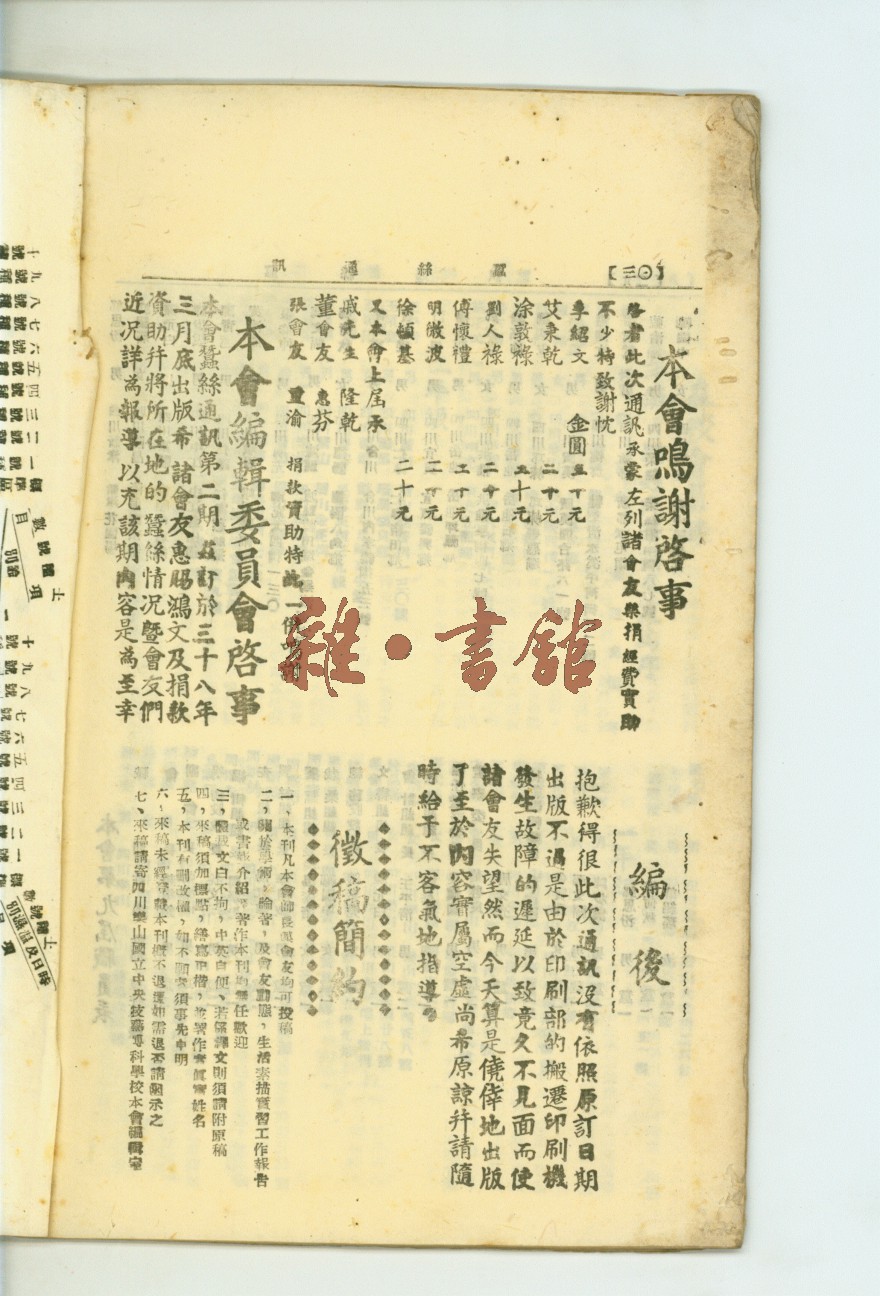 【三〇】
蠶絲通訊
本會鳴謝啓事
啓者此次通訊承蒙左列諸會友樂捐經費實助
不少特致謝忱
李紹文 金圓五十元
艾秉乾 二十元
涂敦祿 五十元
劉人祿 二十元
傅懷禮 二十元
明微波 二十元
徐頓基 二十元
又本會上屆承
戚先生 隆乾
董會友 惠芬
張會友 重渝 捐款資助特此一併鳴謝
本會編輯委員會啓事
本會蠶絲通訊第二期茲訂於三十八年
三月底出版希諸會友惠賜鴻文及捐款
資助幷將所在地的蠶絲情况曁會友們
近况詳為報導以充該期內容是為至幸
編後
抱歉得很此次通訊沒有依照原訂日期
出版不過是由於印刷部的搬遷印刷機
發生故障的遲延以致竟久不見面而使
諸會友失望然而今天算是僥倖地出版
了至於內容實屬空虛尚希原諒幷請隨
時給于不客氣地指導。
徵稿簡約
一、本刊凡本會師長與會友均可投稿
二、關於學術，論著，及會友動態，生活素描實習工作報告
或書報介紹，著作本刊均無任歡迎
三、體裁文白不拘，中英自便、若屬譯文則須請附原稿
四，來稿須加標點，繕寫正楷，並署作者眞實姓名
五，本刊有刪改權，如不願者須事先申明
六，來稿未經登載本刊概不退還如需退否請顯示之
七、來稿請寄四川樂山國立中央技藝專科學校本會編輯室
雜·書館